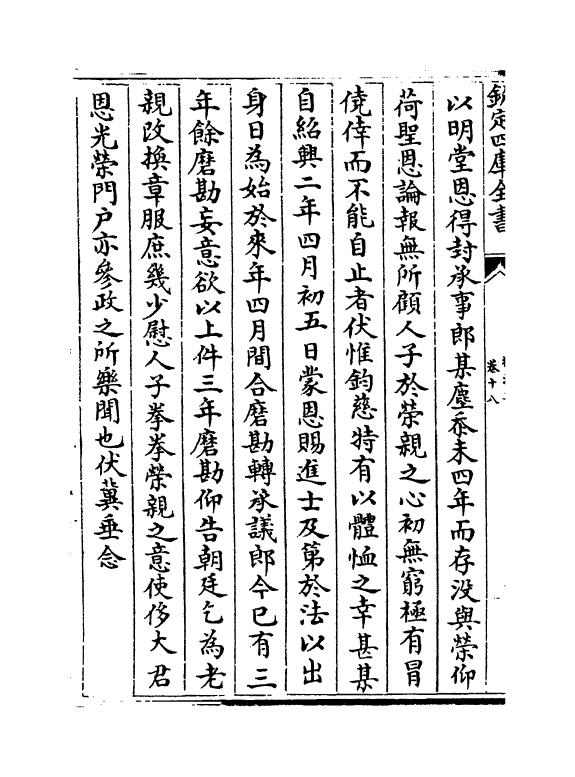 欽定四庫全書
卷十八
以明堂恩得封承事郎某塵忝未四年而存没與榮仰
荷聖恩論報無所顧人子於榮親之心初無窮極有冒
僥倖而不能自止者伏惟鈞慈特有以體恤之幸甚某
自紹興二年四月初五日蒙恩賜進士及第於法以出
身日為始於來年四月間合磨勘轉承議郎今已有三
年餘磨勘妄意欲以上件三年磨勘仰告朝廷乞為老
親改換章服庶幾少慰人子拳拳榮親之意使侈大君
恩光榮門户亦參政之所樂聞也伏冀垂念